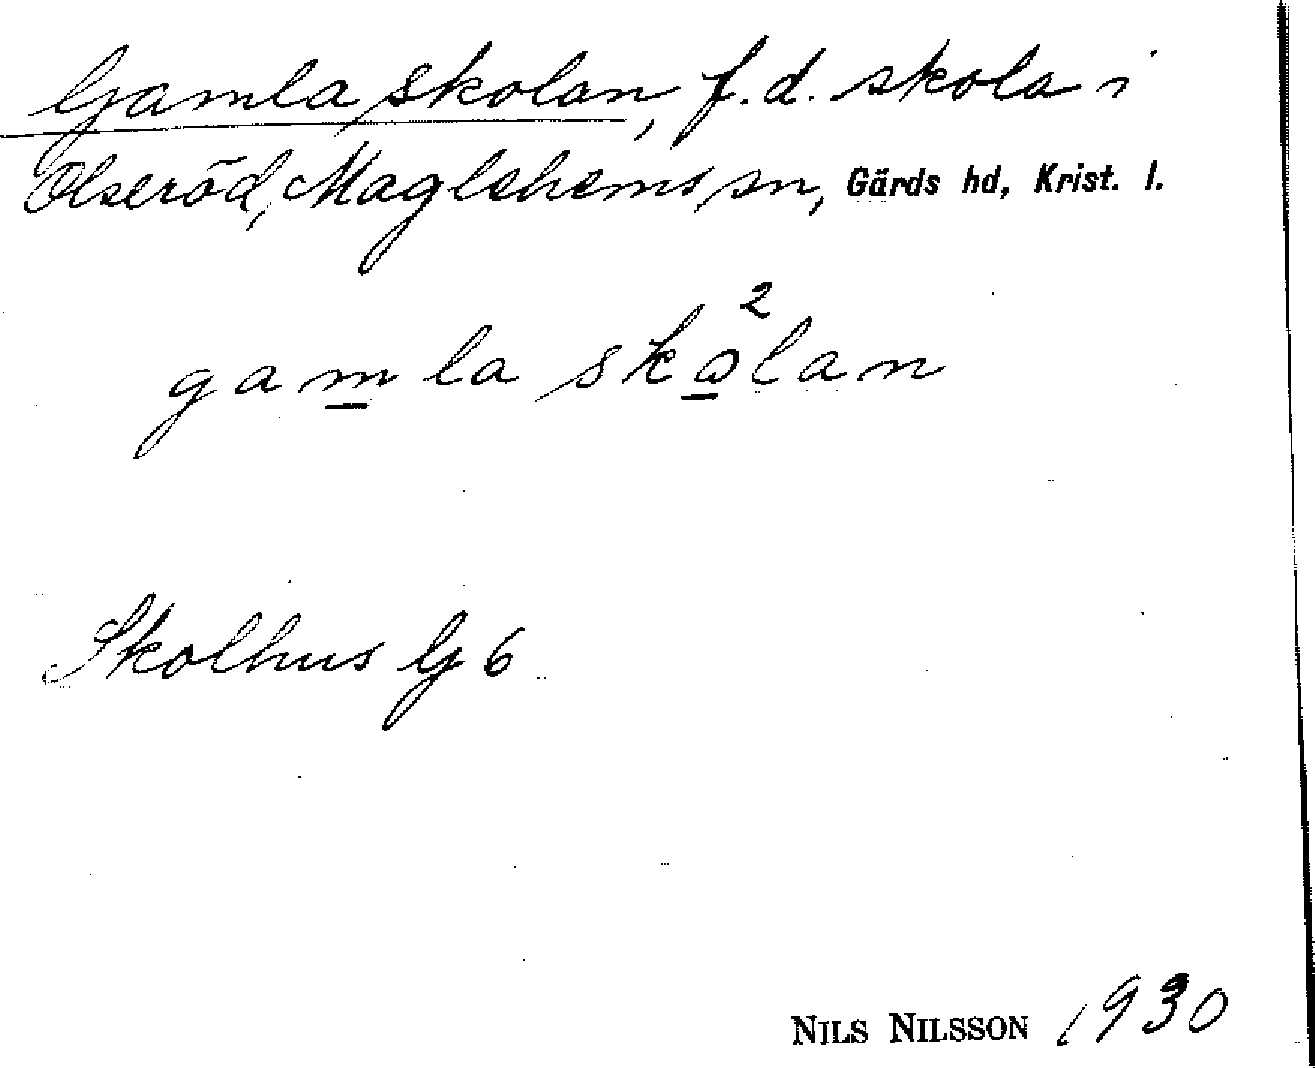 Gamla skolan, f.d. skola i
Olseröd, Maglehems sn, Gärds hd, Krist. l.
gamla sko²lan
Skolhus G 6
NILS NILSSON 1930